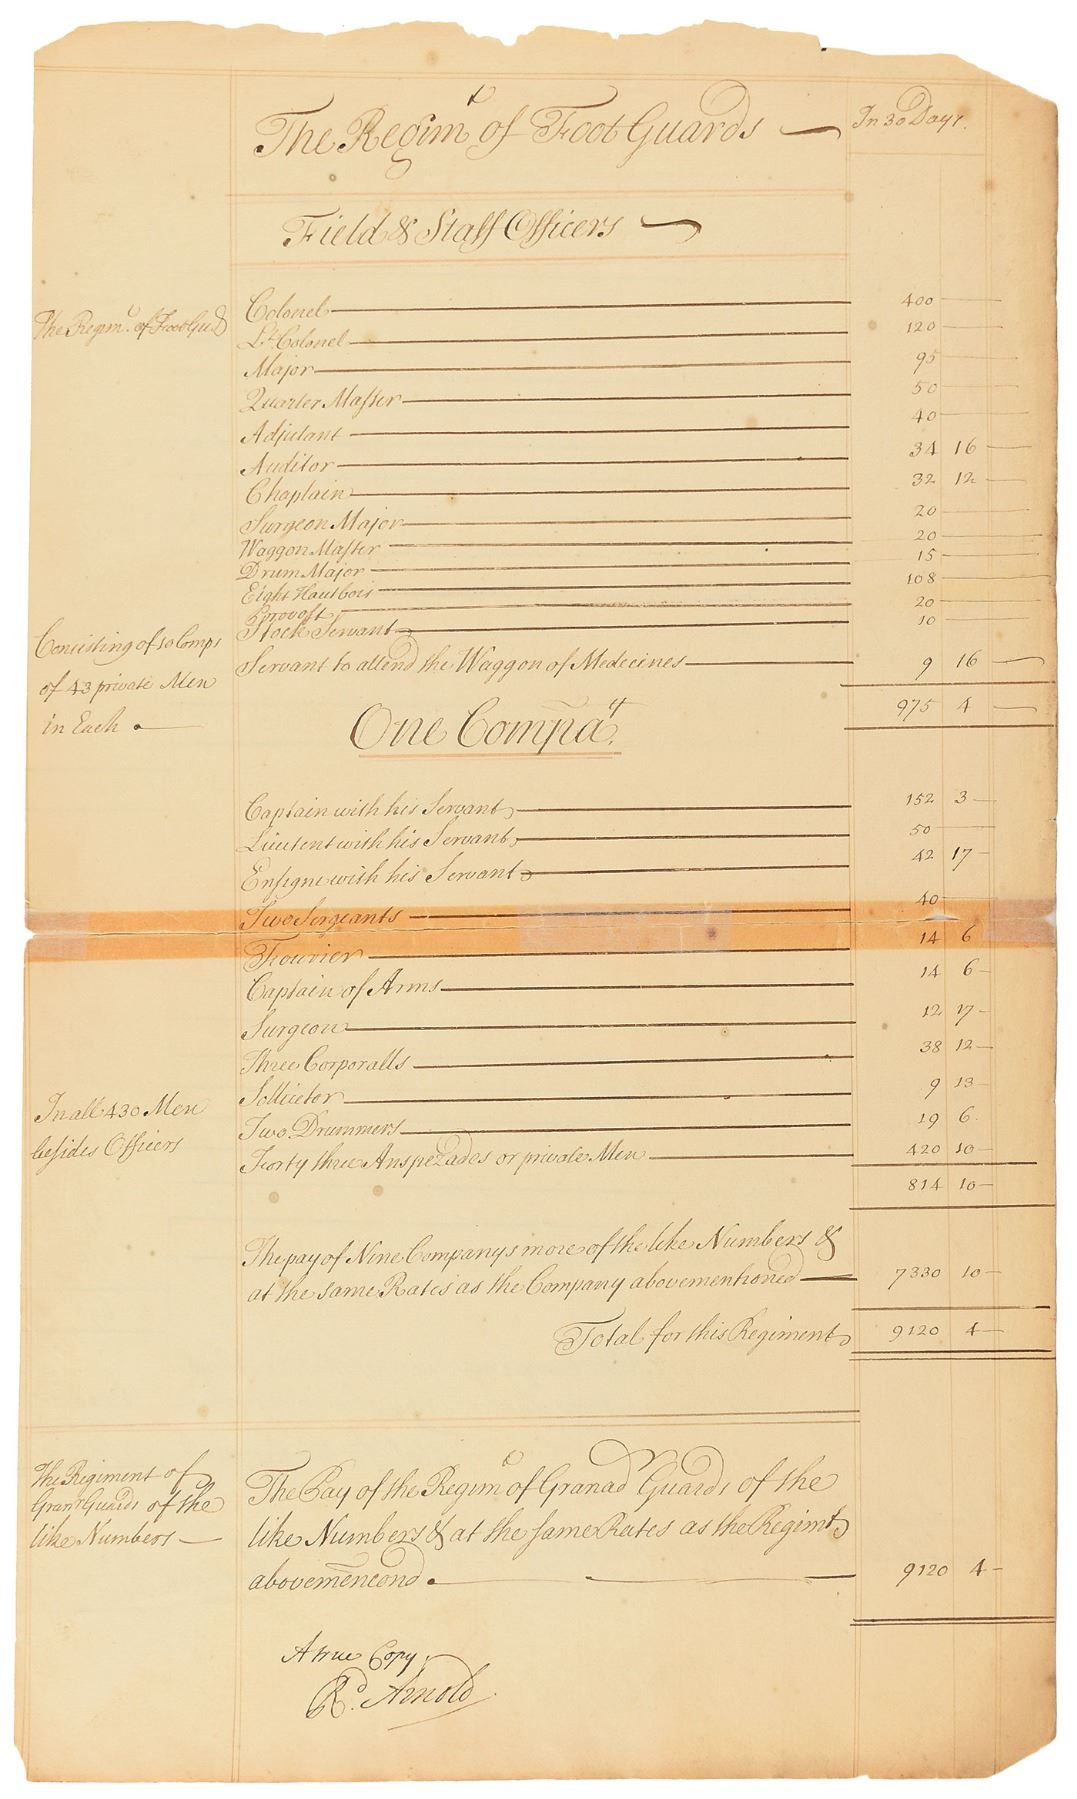 The Regimt of Foot Guards
In 30 Days.
Field & Staff Officers
The Regimt. of Foot Gud
Colonel 400
Lt Colonel 120
Major 95
Quarter Master 50
Adjutant 40
Auditor 34 16
Chaplain 32 12
Surgeon Major 20
Waggon Master 20
Drum Major 15
Eight Hautbois 108
Provost 20
Stock Servant 10
Servant to attend the Waggon of Medecines 9 16
975 4
Consisting of 10 Comps
of 43 private Men
in Each
One Compay.
Captain with his Servant 152 3
Lieutent with his Servant 50
Ensigne with his Servant 42 17
Two Sergeants 40
Fourier 14 6
Captain of Arms 14 6
Surgeon 12 17
Three Corporalls 38 12
Sollicetor 9 13
Two Drummers 19 6
Forty three Anspezades or private Men 420 10
814 10
In all 430 Men
besides Officers
The pay of Nine Companys more of the like Numbers &
at the same Rates as the Company abovementioned 7330 10
Total for this Regiment 9120 4
The Regiment of
Grand Guards of the
like Numbers
The Pay of the Regimt of Granad Guards of the
like Numbers & at the same Rates as the Regimt
abovemencond. 9120 4
A true Copy
Rd. Arnold